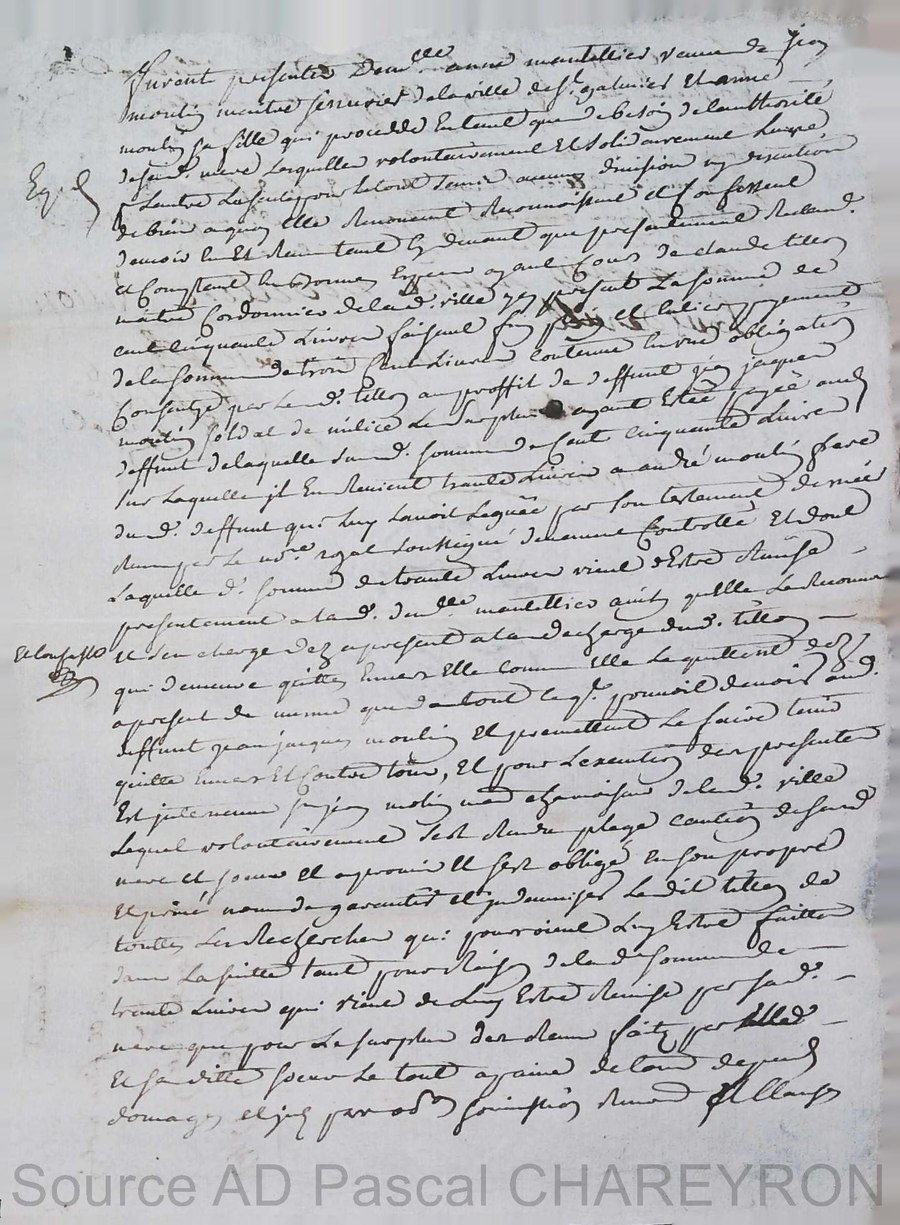 furent presentes dem.lle anne mantellier veuve de jean
moulin maitre serrurier de la ville de st galmier Et anne
moulin sa fille qui procedde En tant que de besoin de lauthorité
de sad. mere Lesquelles volontairement Et solidairement Lune
Exp.
Lautre La seule pour le tout sans aucune division ny discution
de bien a quoy elle Renoncent Reconnoissent et Confessent
davoir Eu Et Reçu tout cy devant que presentement Reelem.
et Comptant En bonnes Especes ayant Cours de claude tillon
maitre Cordonnier de lad. ville icy present La somme de
cent cinquante Livres faisant fin et Entier payement
de la somme de trois Cent Livres Contenue En une obligation
Consentye par led. tillon au proffit de deffunt jean jaques
moulin soldat de milice Le surplus ayant Esté payée aud.
deffunt de laquelle sud. somme de Cent cinquante Livres
sur Laquelle jl En Revient trante Livres a andré moulin frere
dud. deffunt qui Luy avoit Leguée par son testament dernier
Reçu par Le no.re royal soussigné duement Controllé Et dont
Laquelle d. somme de trante Livres vient d'Estre Remise
presentement a lad. dem.lle mantellier ainsy quelle Le Reconnoit
Et Confesse
Et sen charge dez apresent a la decharge dud. tillon
qui demeure quitte Envers Elle comme Elle Le quittent dez
apresent de mesme que de tout ce q. pouvoit devoir aud.
deffunt jean jaques moulin Et promettent Le faire tenir
quitte Envers Et Contre tous, Et pour Lexecution des presentes
Est jntervenu s.r jean molin md chamoiseur de lad. ville
Lequel volontairement sest Rendu plege caution de sad.
mere et soeur Et a promis Et sest obligé En son propre
Et privé nom de garantir et jndemniser Ledit tillon de
touttes Les Recherches qui pourroient Luy Estre faittes
dans La suitte tant pour Raison de lad. somme de
trante Livres qui vient de Luy Estre Remise par sad.
mere que pour Le surplus des Reçus faits par Elle
Et sa ditte soeur Le tout a peine de tous depens
domages et jnt. par obon soumission Renon. Et Clauses
Source AD Pascal CHAREYRON